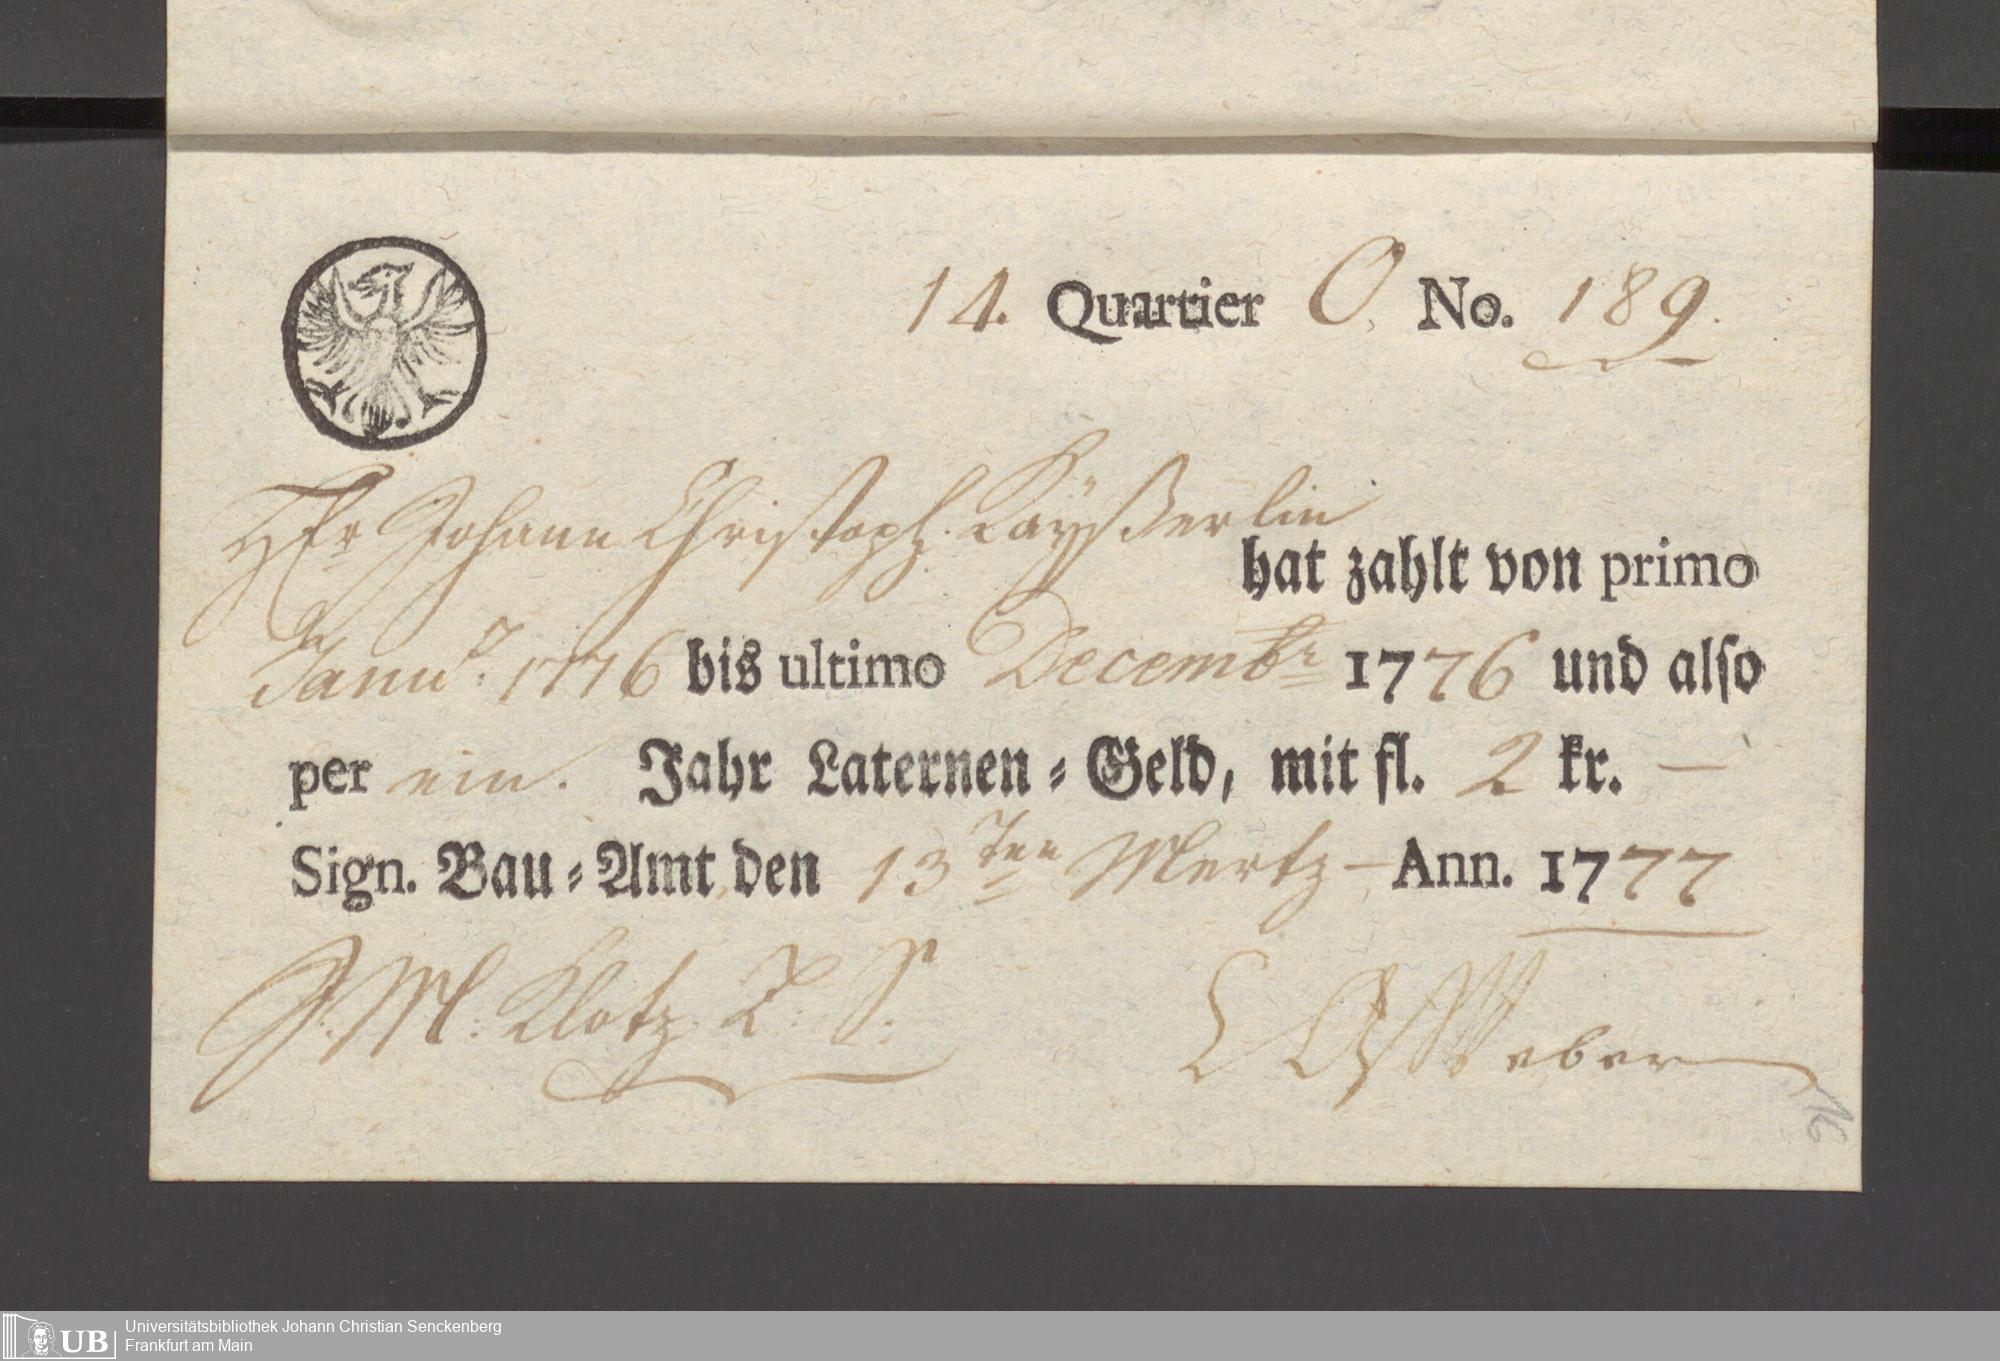 14. Quartier O. No. 189.
Hr Johann Christoph Kayßerlin
hat zahlt von primo
Janu. 1776 bis ultimo Decembr 1776 und also
per ein. Jahr Laternen-Geld, mit fl. 2 kr. —
Sign. Bau-Amt den 13ten Mertz — Ann. 1777
J. M. Klotz
Weber
16
UB Universitätsbibliothek Johann Christian Senckenberg
Frankfurt am Main